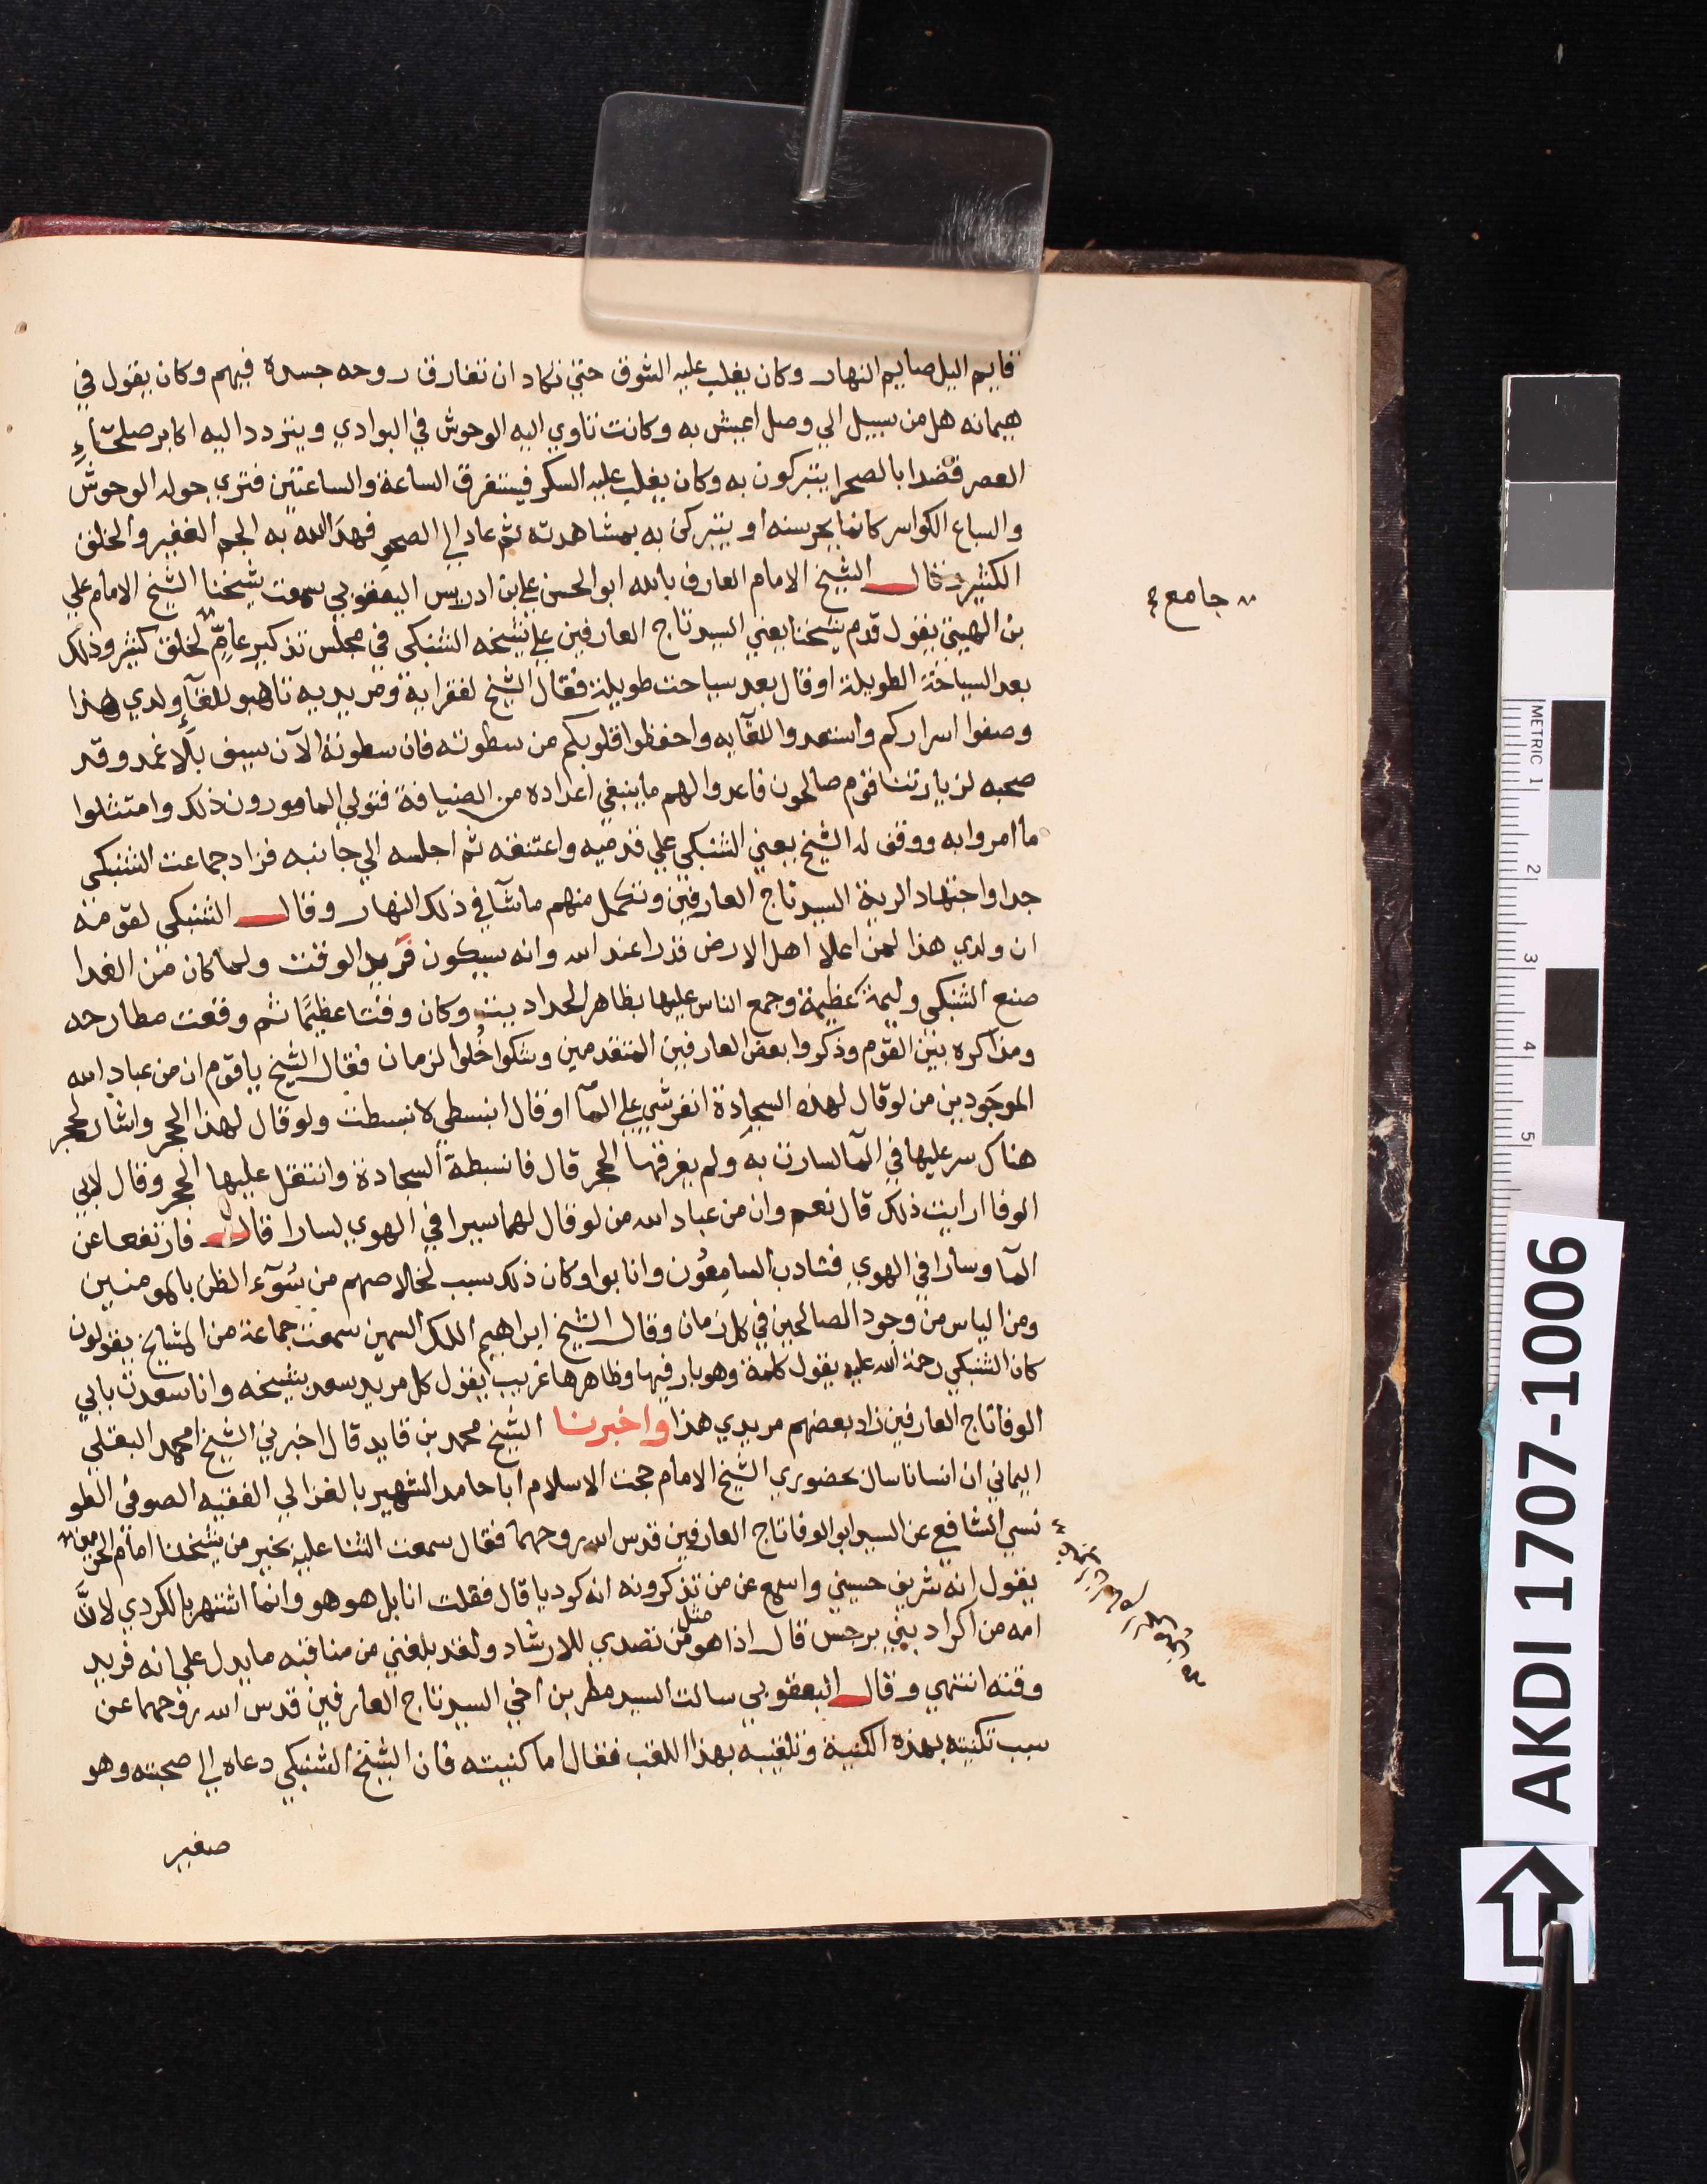 قايم اليل صايم النهار وكان يغلب عليه الشوق حتي تكاد ان تفارق روحه جسده فيهم وكان يقول في
هيمانه هل من سبيل الي وصل اعيش به وكانت تاوي اليه الوحوش في البوادي ويتردد اليه اكابر صلحاء
العصر قصدا بالصحرا يتبركون به وكان يغلب عليه السكر فيستغرق الساعة والساعتين فتري حوله الوحوش
والسباع الكواسر كانما يحرسنه او يتبركن به بمشاهدته ثم عاد الي الصحو فهدا الله به الجم الغفير والخلق
الكثير وقال الشيخ الامام العارف بالله ابو الحسن علي بن ادريس اليعقوبي سمعت شيخنا الشيخ الامام علي
بن الهيتي يقول قدم شيخنا يعني السيد تاج العارفين علي شيخه الشنبكي في مجلس تذكير عام لخلق كثير وذلك
جامع
بعد السياحة الطويلة او قال بعد سياحت طويلة فقال الشيخ لفقرايه ومريديه تاهبو للقآء ولدي هذا
وصفوا اسراركم واستعدوا للقآيه واحفظوا قلوبكم من سطوته فان سطوته الآن سيف بلا غمد وقد
صحبه لزيارتنا قوم صالحون فاعدوا لهم ما ينبغي اعداده من الضيافة فتولي المامورون ذلك وامتثلوا
ما امروا به ووقف له الشيخ يعني الشنبكي علي قدميه واعتنقه ثم اجلسه الي جانبه فزاد جماعت الشنبكي
جدا واجتهاد الرية السيد تاج العارفين وتكمل منهم ماشآ في ذلك النهار وقال الشنبكي لقومه
ان ولدي هذا لمن اعلا اهل الارض قدرا عند الله وانه سيكون فريد الوقت ولما كان من الغدا
صنع الشنبكي وليمة عظيمة وجمع الناس عليها بظاهر الحدادية وكان وقتا عظيما ثم وقعت مطارحه
ومذاكره بين القوم وذكروا بعض العارفين المتقدمين وشكوا خلوا لزمان فقال الشيخ ياقوم ان من عباد الله
الموجودين من لو قال لهذه السجادة انفرشي علي المآ او قال انبسطي لانبسطت ولو قال لهذا الحجر واشار لحجر
هناك سر عليها في المآ لسارت به ولم يغرقها الحجر قال فانبسطة السجادة وانتقل عليها الحجر وقال لابي
الوفا ارايت ذلك قال نعم وان من عباد الله من لو قال لهما سيرا في الهوي لسارا قال فارتفعا عن
المآ وسارا في الهوي فتادب السامعون وانابوا وكان ذلك سبب لخلاصهم من سوء الظن بالمومنين
ومن الياس من وجود الصالحين في كل زمان وقال الشيخ ابراهيم الملك السهين سمعت جماعة من المشايخ يقولون
كان الشنبكي رحمة الله عليه يقول كلمة وهو بار فيها وظاهرها غريب يقول كل مريد سعد بشيخه وانا سعدت بابي
الوفا تاج العارفين زاد بعضهم مريدي هذا واخبرنا الشيخ محمد بن قايد قال اخبرني الشيخ محمد البقلي
اليماني ان انسانا سال بحضوري الشيخ الامام حجت الاسلام ابا حامد الشهير بالغزالي الفقيه الصوفي الطو
نسي الشافعي عن السيد ابو الوفا تاج العارفين قدس الله روحهما فقال سمعت الثنا عليه بخير من شيخنا امام الحرمين
يقول انه شريف حسيني واسمع عن من تذكرونه انه كوديا قال فقلت انا بل هو هو وانما اشتهر بالكردي لان
امه من اكراد بيني برجس قال اذا هو مثل من تصدي للارشاد ولقد بلغني من مناقبه ما يدل علي انه فريد
وقته انتهي وقال اليعقوبي سالت السيد مطر بن اخي السيد تاج العارفين قدس الله روحهما عن
سبب تكنيته بهذه الكنية وتلقيبه بهذا اللقب فقال اما كنيته فان الشيخ الشنبكي دعاه الي صحبته وهو
صغير
AKDI 1707-1006
METRIC 1 2 3 4 5